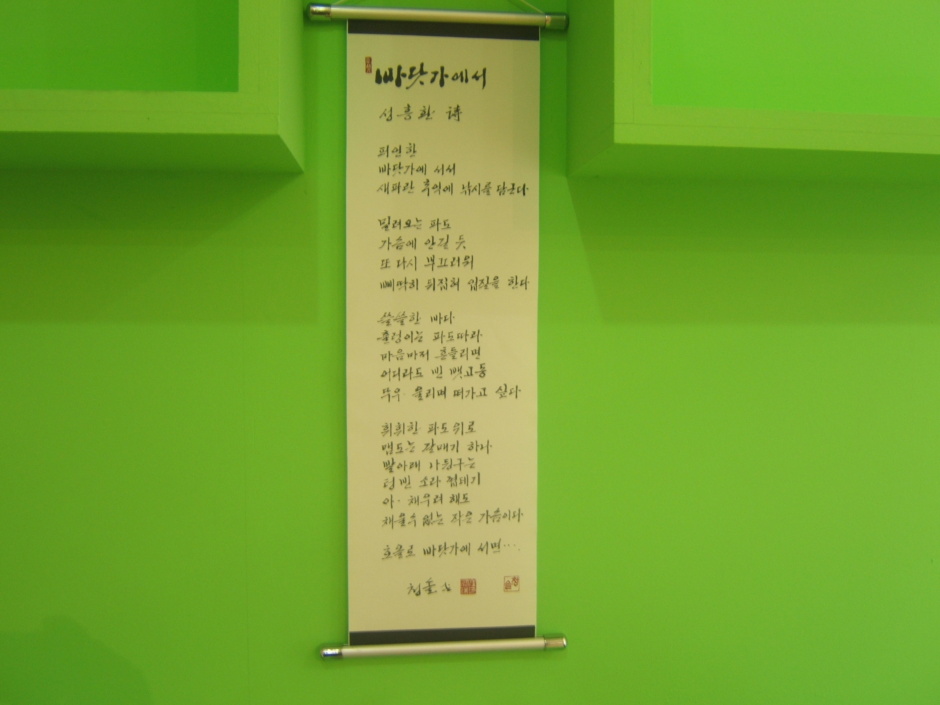 빠닷가에서
성흥환 詩
희연한
빠닷가에 서서
새파란 추억에 낚시를 담근다
밀려오는 파도
가슴에 안길 듯
또 다시 부끄러워
빼딱히 뒤집혀 입질을 한다
쓸쓸한 바다
출렁이는 파도따라
마음마저 흔들리면
어디라도 빈 뱃고동
뚜우 울리며 떠가고 싶다
휘휘한 파도 위로
맴도는 갈매기 하나
발아래 나뒹구는
텅 빈 소라 껍데기
아· 채우려 해도
채울수 없는 작은 가슴이다
호올로 빠닷가에 서면···.